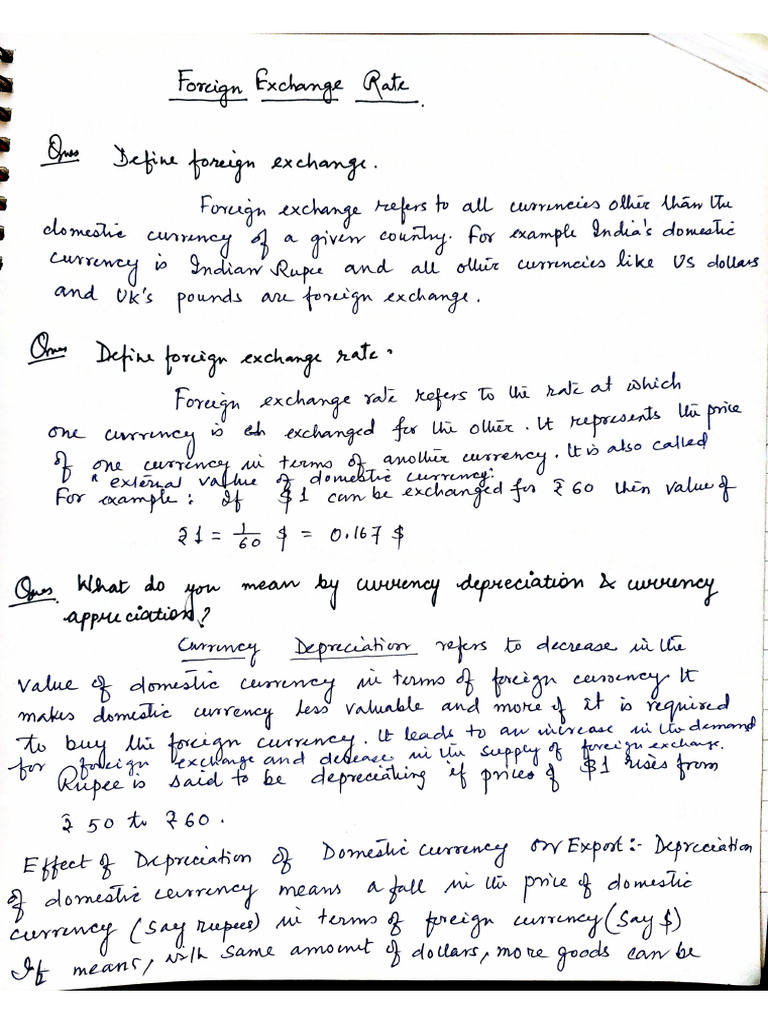 Foreign Exchange Rate.
Ques Define foreign exchange.
Foreign exchange refers to all currencies other than the
domestic currency of a given country. For example India's domestic
currency is Indian Rupee and all other currencies like US dollars
and UK's pounds are foreign exchange.
Ques Define foreign exchange rate.
Foreign exchange rate refers to the rate at which
one currency is exchanged for the other. It represents the price
of one currency in terms of another currency. It is also called
external value of domestic currency.
For example: If $1 can be exchanged for ₹60 then value of
₹1 = 1/60 $ = 0.167 $
Ques. What do you mean by currency depreciation & currency
appreciation?
Currency Depreciation refers to decrease in the
value of domestic currency in terms of foreign currency. It
makes domestic currency less valuable and more of it is required
to buy the foreign currency. It leads to an increase in the demand
for foreign exchange and decrease in the supply of foreign exchange.
Rupee is said to be depreciating if prices of $1 rises from
₹50 to ₹60.
Effect of Depreciation of Domestic currency on Export:- Depreciation
of domestic currency means a fall in the price of domestic
currency (say rupees) in terms of foreign currency (say $)
It means, with same amount of dollars, more goods can be